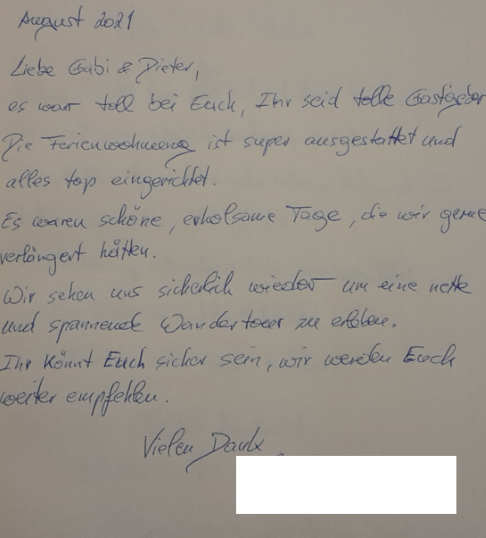 August 2021
Liebe Gabi & Dieter,
es war toll bei Euch, Ihr seid tolle Gastgeber
Die Ferienwohnung ist super ausgestattet und
alles top eingerichtet.
Es waren schöne, erholsame Tage, die wir gerne
verlängert hätten.
Wir sehen uns sicherlich wieder um eine nette
und spannende Wandertour zu erleben.
Ihr könnt Euch sicher sein, wir werden Euch
weiter empfehlen.
Vielen Dank